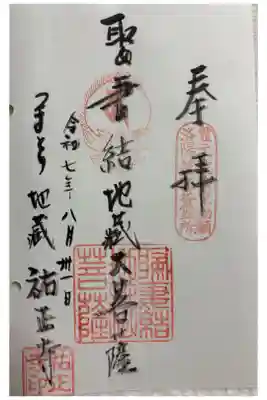 奉拝
娶妻結地蔵大菩薩
令和七年八月卅一日
つまとり地蔵 祐正寺